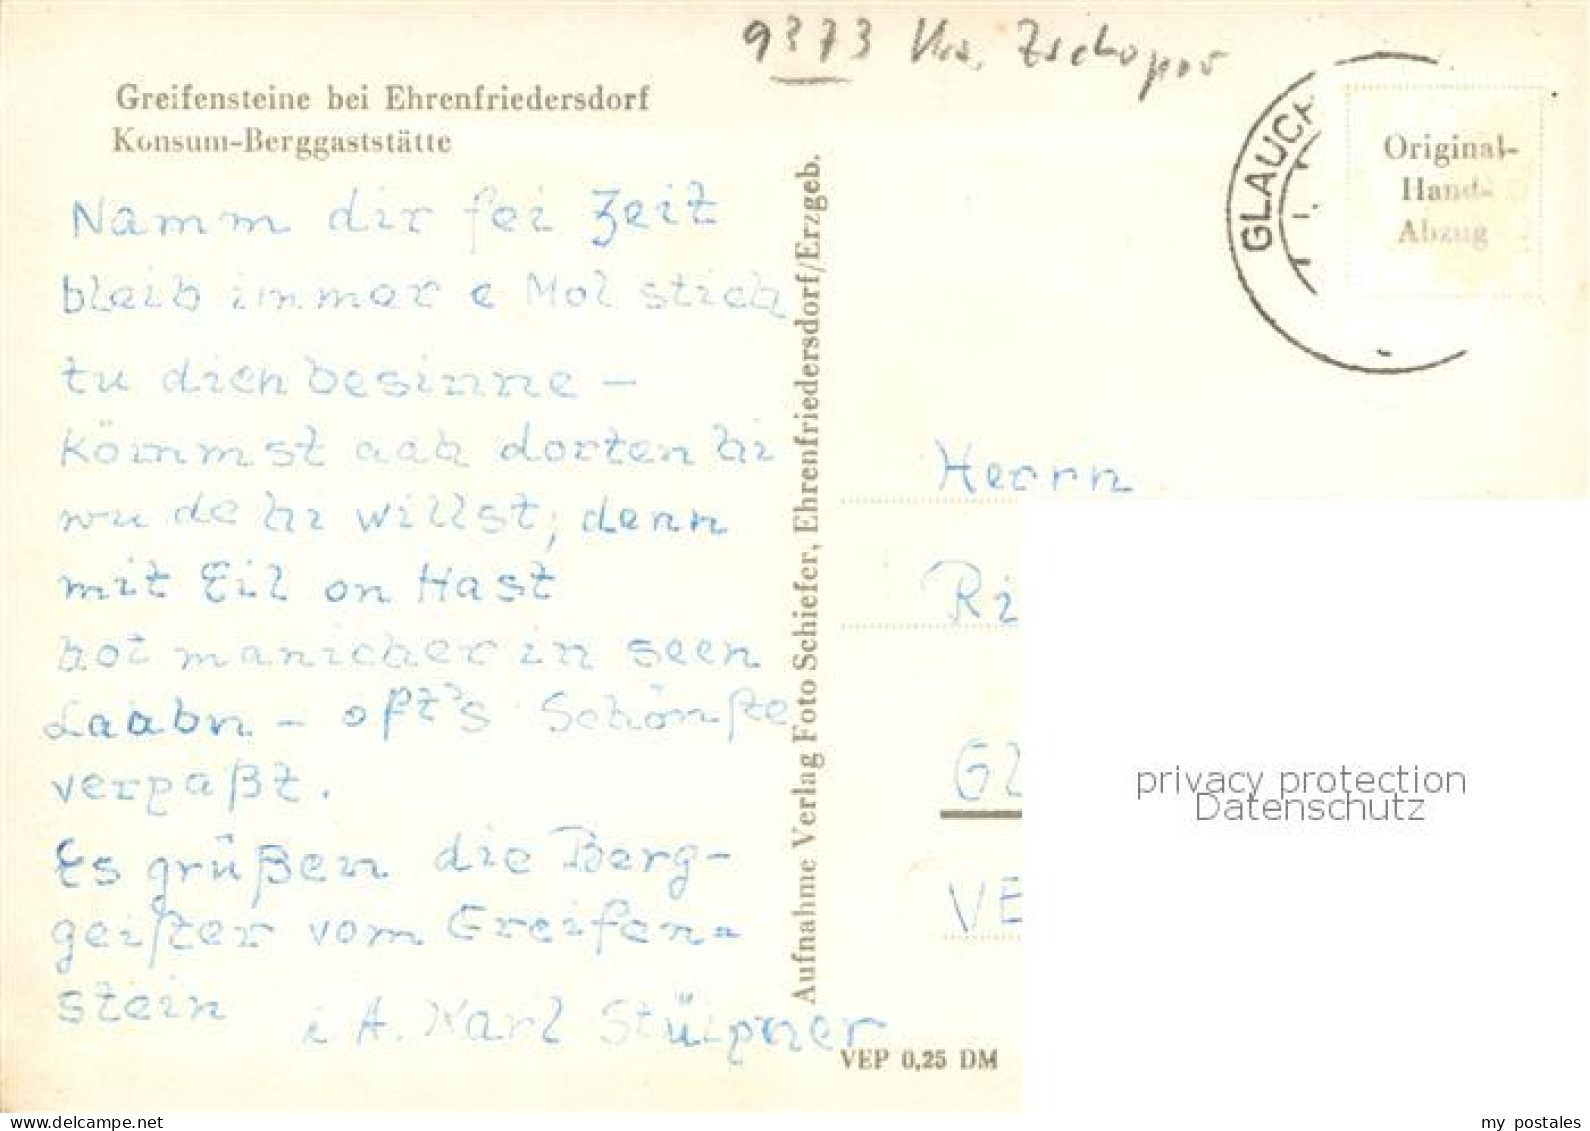 9373 Krs. Zschopau
Greifensteine bei Ehrenfriedersdorf
Konsum-Berggaststätte
Namm dir fei Zeit
bleib immer e Mol stieh
tu dich besinne –
kömmst aah dorten hi
wu de hi willst, denn
mit Eil on Hast
hot manicher in seen
Laabn – oft's Schönste
verpaßt.
Es grüßen die Berg-
geister vom Greifen=
stein
i A. Karl Stülpner
Aufnahme Verlag Foto Schiefer, Ehrenfriedersdorf/Erzgeb.
VEP 0,25 DM
GLAUCH
Original-
Hand-
Abzug
Herrn
Ri
Gl
VE
privacy protection
Datenschutz
delcampe.net
my_postales